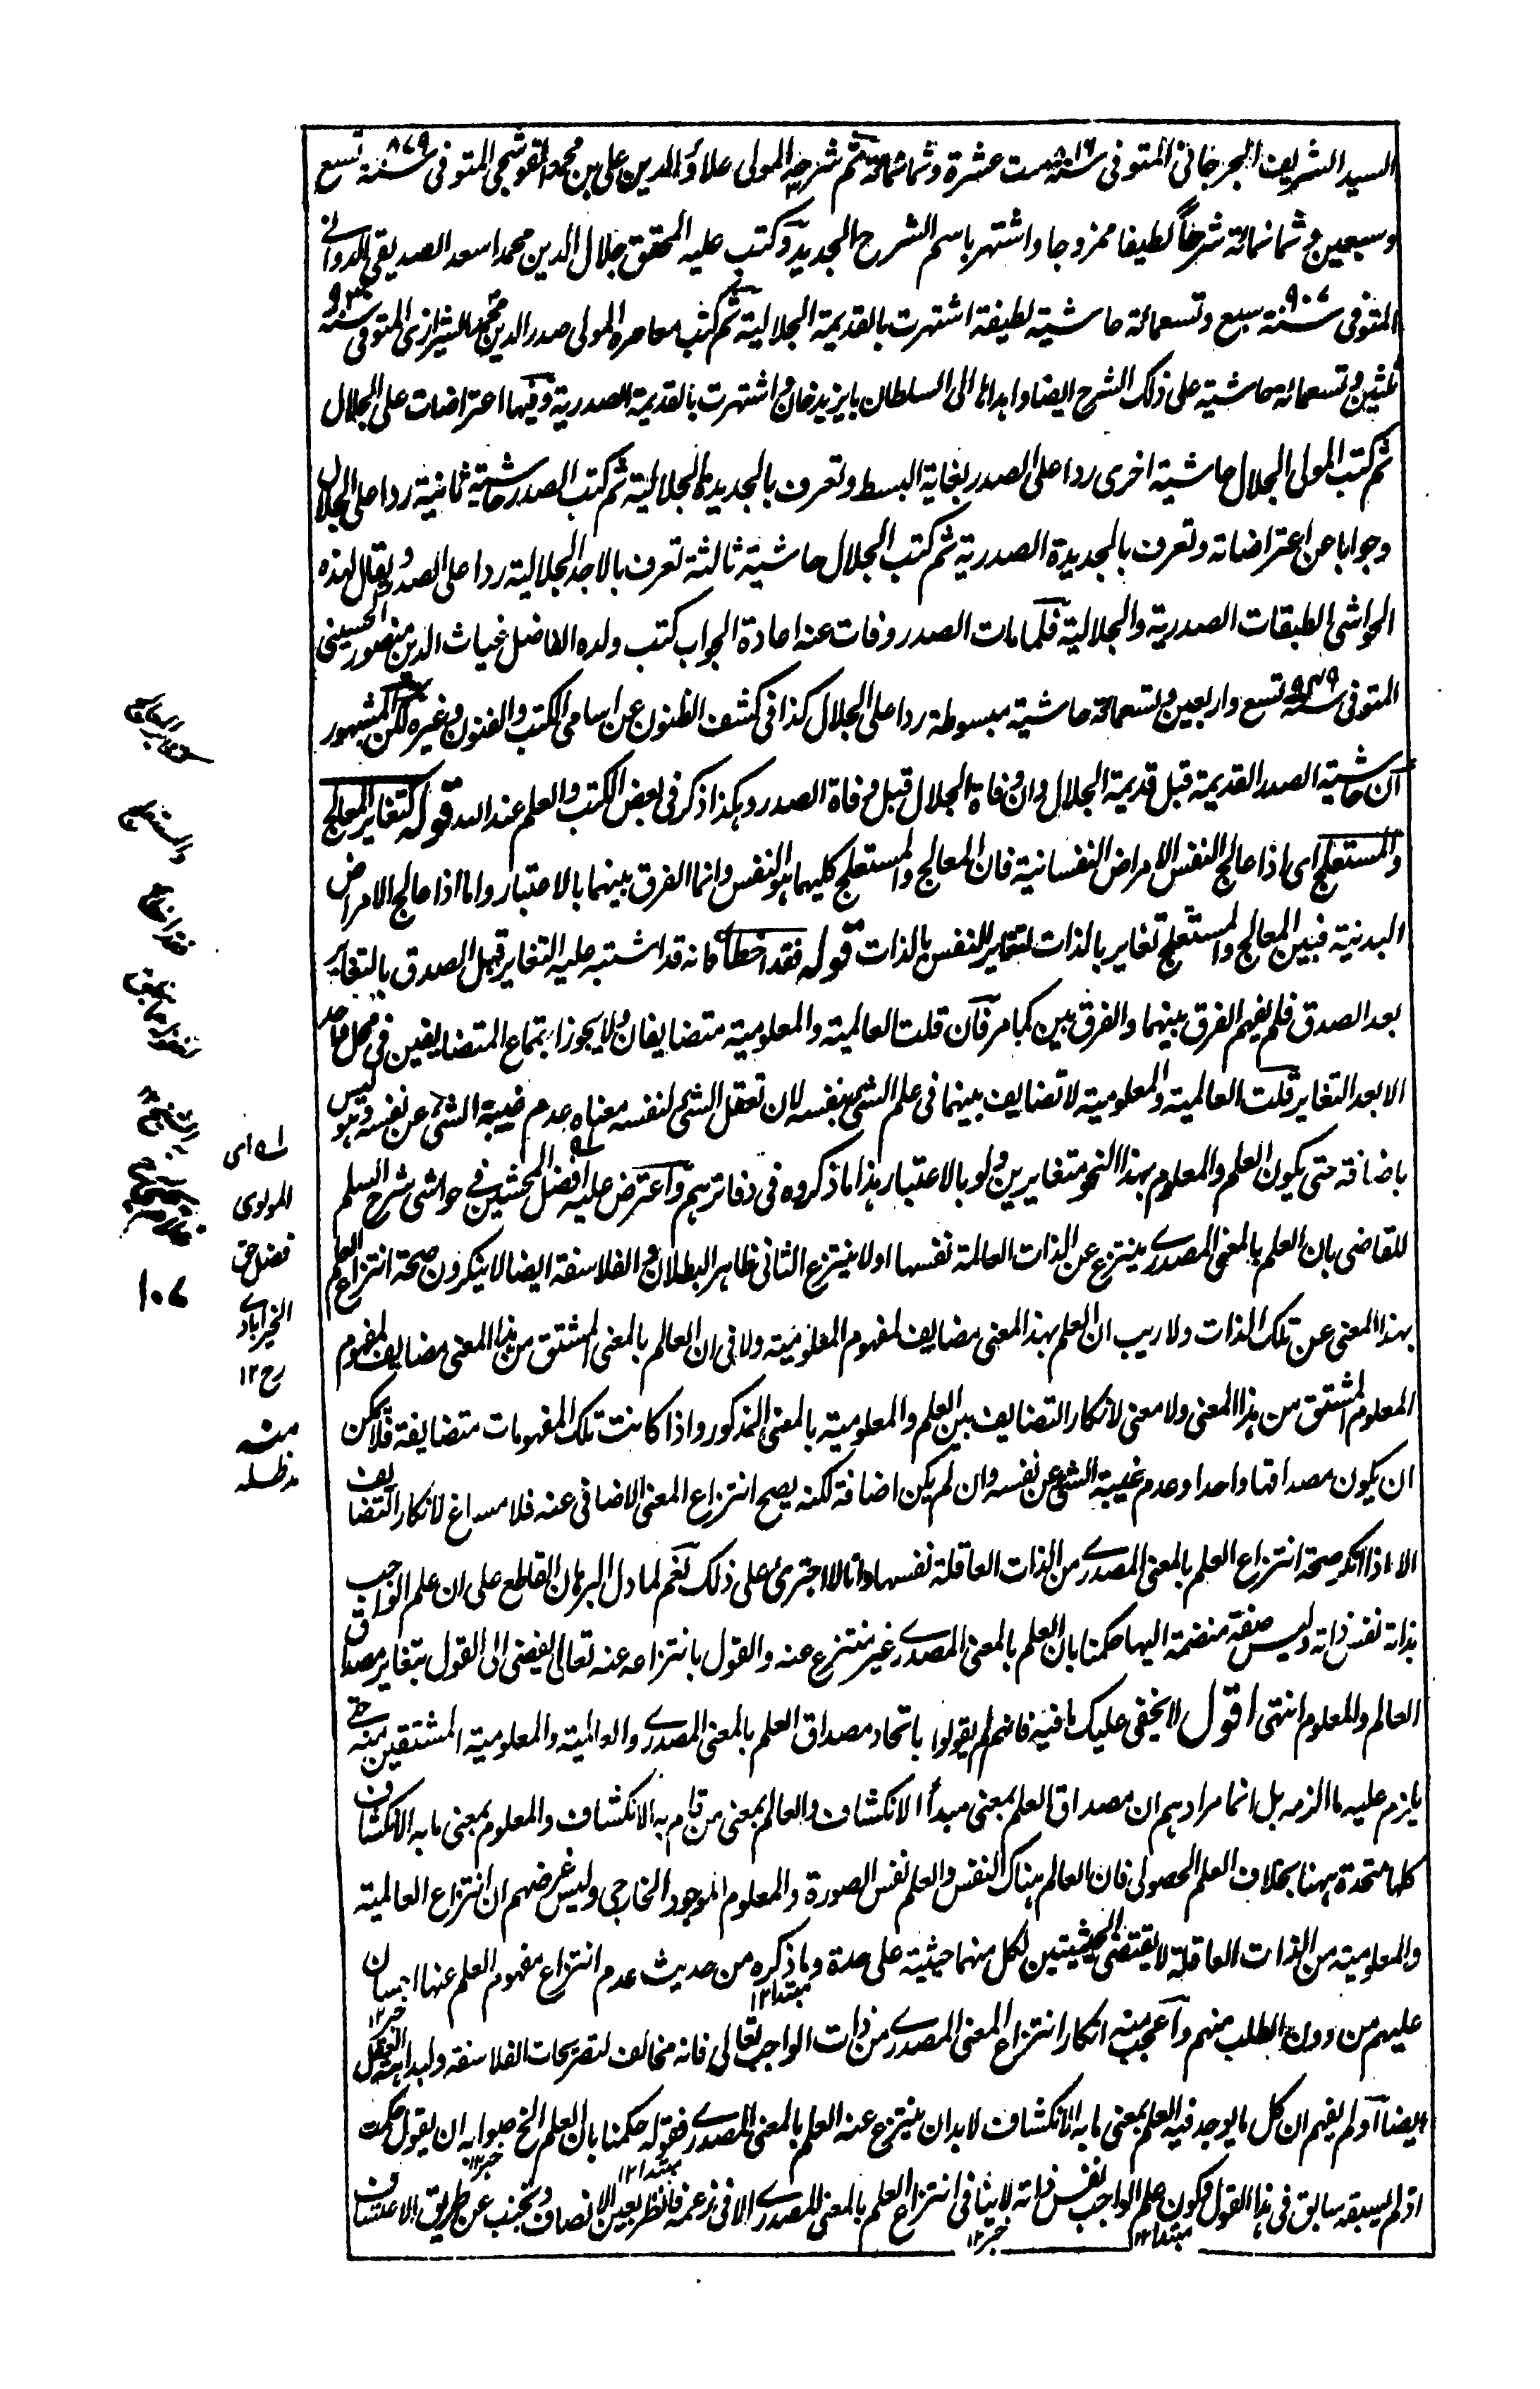 السيد الشريف الجرجاني المتوفى سنة ٨١٦ ست عشرة وثمانمائة ثم شرحه المولى علاؤ الدين على بن محمد القوشجى المتوفى سنة ٨٧٩ تسع
وسبعين وثمانمائة شرحاً لطيفا ممزوجا واشتهر باسم الشرح الجديد وكتب عليه المحقق جلال الدين محمد اسعد الصديقي الدواني
المتوفى سنة ٩٠٧ سبع وتسعمائة حاشية لطيفة اشتهرت بالقديمة الجلالية ثم كتب معاصره المولى صدر الدين محمد الشيرازى المتوفى سنة ٩٣٠
ثلثين وتسعمائة حاشية على ذلك الشرح ايضا واهداها الى السلطان بايزيد خان واشتهرت بالقديمة الصدرية وفيها اعتراضات على الجلال
ثم كتب المولى الجلال حاشية اخرى ردا على الصدر بغاية البسط وتعرف بالجديدة الجلالية ثم كتب الصدر حاشية ثانية ردا على الجلال
وجوابا عن اعتراضاته وتعرف بالجديدة الصدرية ثم كتب الجلال حاشية ثالثة تعرف بالاجد الجلالية ردا على الصدر ويقال لهذه
الحواشى الطبقات الصدرية والجلالية فلما مات الصدر وفات عنه اعادة الجواب كتب ولده الفاضل غياث الدين منصور الحسينى
المتوفى سنة ٩٤٩ تسع واربعين وتسعمائة حاشية مبسوطة ردا على الجلال كذا فى كشف الظنون عن اسامى الكتب والفنون وغيره لكن المشهور
ان حاشية الصدر القديمة قبل قديمة الجلال وان وفاة الجلال قبل وفاة الصدر وهكذا ذكر فى بعض الكتب والعلم عند الله قوله كتغاير المعالج
والمستعلج اى اذا عالج النفس الامراض النفسانية فان المعالج والمستعلج كليهما هو النفس وانما الفرق بينهما بالاعتبار واما اذا عالج الامراض
البدنية فبين المعالج والمستعلج تغاير بالذات لتغاير النفس بالذات قوله فقد اخطأ كانه قد اشتبه عليه التغاير قبل الصدق بالتغاير
بعد الصدق فلم يفهم الفرق بينهما والفرق بين كما مر فان قلت العالمية والمعلومية متضايفان ولا يجوز اجتماع المتضايفين فى محل واحد
الا بعد التغاير قلت العالمية والمعلومية لا تضايف بينهما فى علم الشئ بنفسه لان تعقل الشئ لنفسه معناه عدم غيبة الشئ عن نفسه وهو ليس
باضافة حتى يكون العلم والمعلوم بهذا النحو متغايرين ولو بالاعتبار هذا ما ذكروه فى دفاترهم واعترض عليه افضل المحشين فى حواشى شرح السلم
للقاضى بان العلم بالمعنى المصدرى ينتزع عن الذات العالمة نفسها اولا ينتزع الثانى ظاهر البطلان والفلاسفة ايضا لا ينكرون صحة انتزاع العلم
بهذا المعنى عن تلك الذات ولا ريب ان العلم بهذا المعنى مضايف لمفهوم المعلومية ولا فى ان العالم بالمعنى المشتق من هذا المعنى مضايف لمفهوم
المعلوم المشتق من هذا المعنى ولا معنى لانكار التضايف بين العلم والمعلومية بالمعنى المذكور واذا كانت تلك المفهومات متضايفة فلا يمكن
ان يكون مصداقها واحدا وعدم غيبة الشئ عن نفسه وان لم يكن اضافة لكنه يصح انتزاع المعنى الاضافى عنه فلا مساغ لانكار التضايف
الا اذا انكر صحة انتزاع العلم بالمعنى المصدرى من الذات العاقلة نفسها وانا لا اجترئ على ذلك نعم لما دل البرهان القاطع على ان علم الواجب
بذاته نفس ذاته وليس صفة منضمة اليها حكمنا بان العلم بالمعنى المصدرى غير منتزع عنه والقول بانتزاعه عنه تعالى يفضى الى القول بتغاير مصداق
العالم والمعلوم انتهى اقول لا يخفى عليك ما فيه فانهم لم يقولوا باتحاد مصداق العلم بالمعنى المصدرى والعالمية والمعلومية المشتقين منه حتى
يلزم عليه ما الزمه بل انما مرادهم ان مصداق العلم بمعنى مبدأ الانكشاف والعالم بمعنى من قام به الانكشاف والمعلوم بمعنى ما به الانكشاف
كلها متحدة ههنا بخلاف العلم الحصولى فان العالم هناك النفس والعلم نفس الصورة والمعلوم الموجود الخارجى وليس غرضهم ان انتزاع العالمية
والمعلومية من الذات العاقلة لا يقتضى الحيثيتين لكل منهما حيثية على حدة وما ذكره من حديث عدم انتزاع مفهوم العلم عنها احسان
مبتدا ١٢
خبر ١٢
عليهم من دون الطلب منهم واعجب منه انكار انتزاع المعنى المصدرى من ذات الواجب تعالى فانه مخالف لتصريحات الفلاسفة ولبداهة العقل
ايضا أو لم يفهم ان كل ما يوجد فيه العلم بمعنى ما به الانكشاف لابد ان ينتزع عنه العلم بالمعنى المصدرى فقوله حكمنا بان العلم الخ صوابه ان يقول حكمت
مبتدا ١٢
خبر ١٢
اذ لم يسبقه سابق فى هذا القول وكون علم الواجب نفس ذاته لا ينافى انتزاع العلم بالمعنى المصدرى الا فى زعمه فانظر بعين الانصاف وتجنب عن طريق الاعتساف
مبتدا ١٢
خبر ١٢
له اى
المولوى
فضل حق
الخيرآبادى
رح ١٢
منه
مد ظله
١٠٧